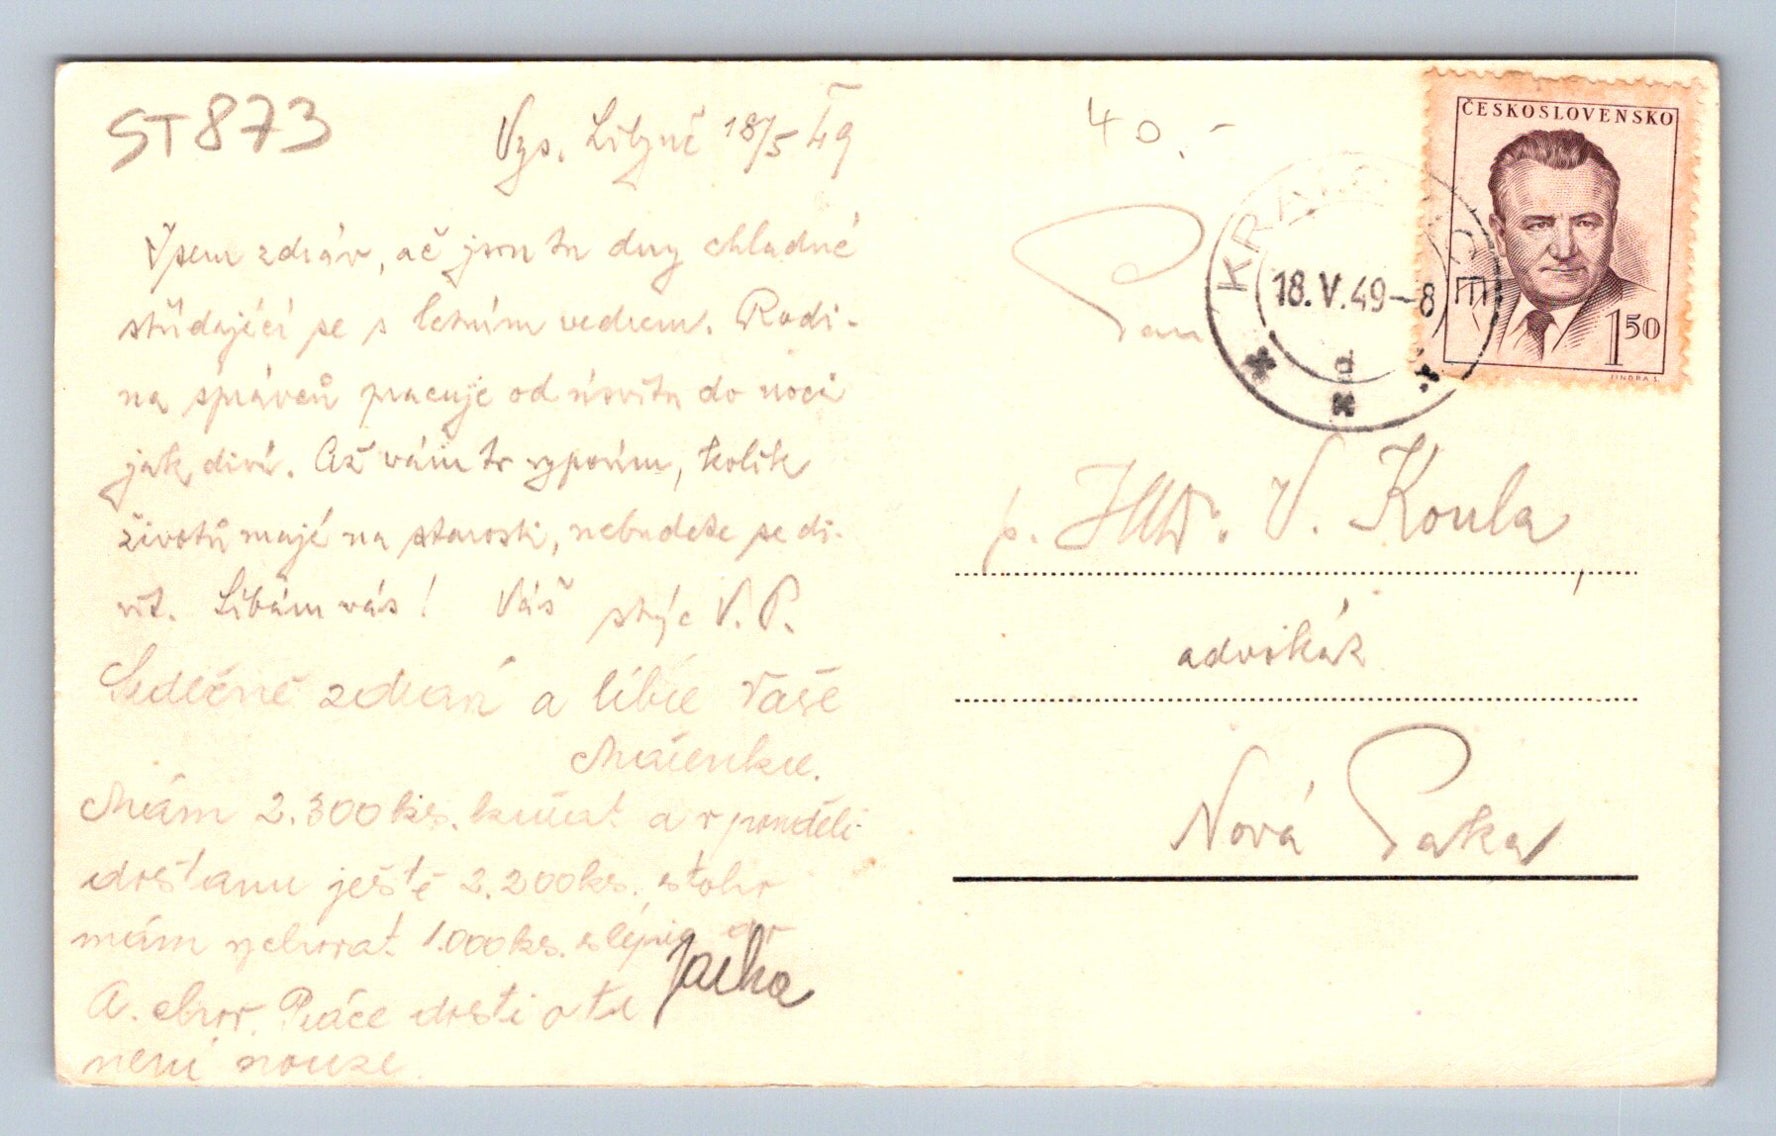 ST873
Vys. Libyně 18/5 49
Jsem zdráv, ač jsou tu dny chladné
střídající se s letním vedrem. Rodi-
na správců pracuje od úsvitu do noci
jak diví. Až vám to vypovím, kolik
životů mají na starosti, nebudete se di-
vit. Líbám vás! Váš strýc V. P.
Srdečné zdraví a líbie Vaše
Mařenka.
Mám 2.300 ks. kuřat a v ponděli
dostanu ještě 2.200 ks. z toho
mám vychovat 1.000 ks. slepic do
A. chov. Práce dosti o tu
není nouze.
Jarka
40.-
ČESKOSLOVENSKO
1 50
JINDRA S.
KRALOVICE
18.V.49-8
Pan
p. JUDr. V. Koula,
advokát
Nová Paka